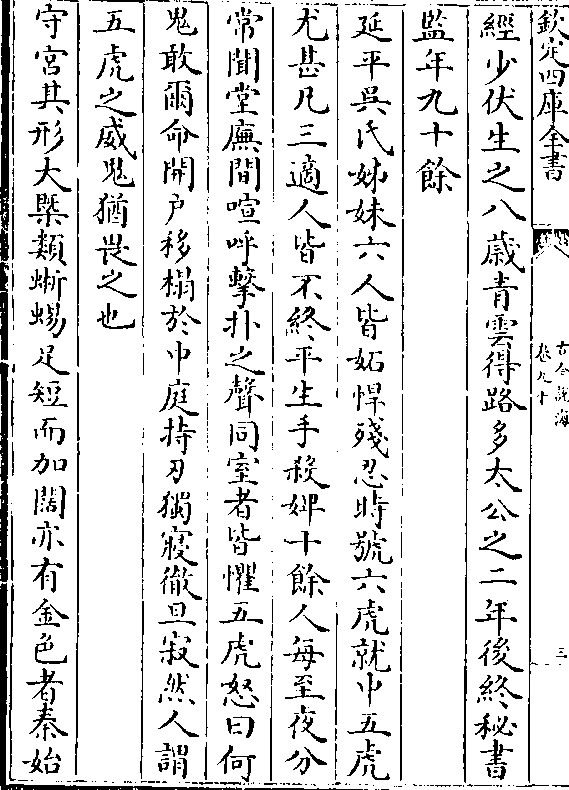 欽定四庫全書
古今説海
卷九十
三
經少伏生之八歲青雲得路多太公之二年後終秘書
監年九十餘
延平吳氏姊妹六人皆妬悍殘忍時號六虎就中五虎
尤甚凡三適人皆不終平生手殺婢十餘人每至夜分
常聞堂廡間喧呼擊扑之聲同室者皆懼五虎怒曰何
鬼敢爾命開戶移榻於中庭持刃獨寢徹旦寂然人謂
五虎之威鬼猶畏之也
守宮其形大槩類蜥蜴足短而加闊亦有金色者秦始